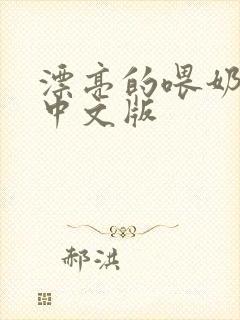 漂亮的喂奶
中文版
郝洪